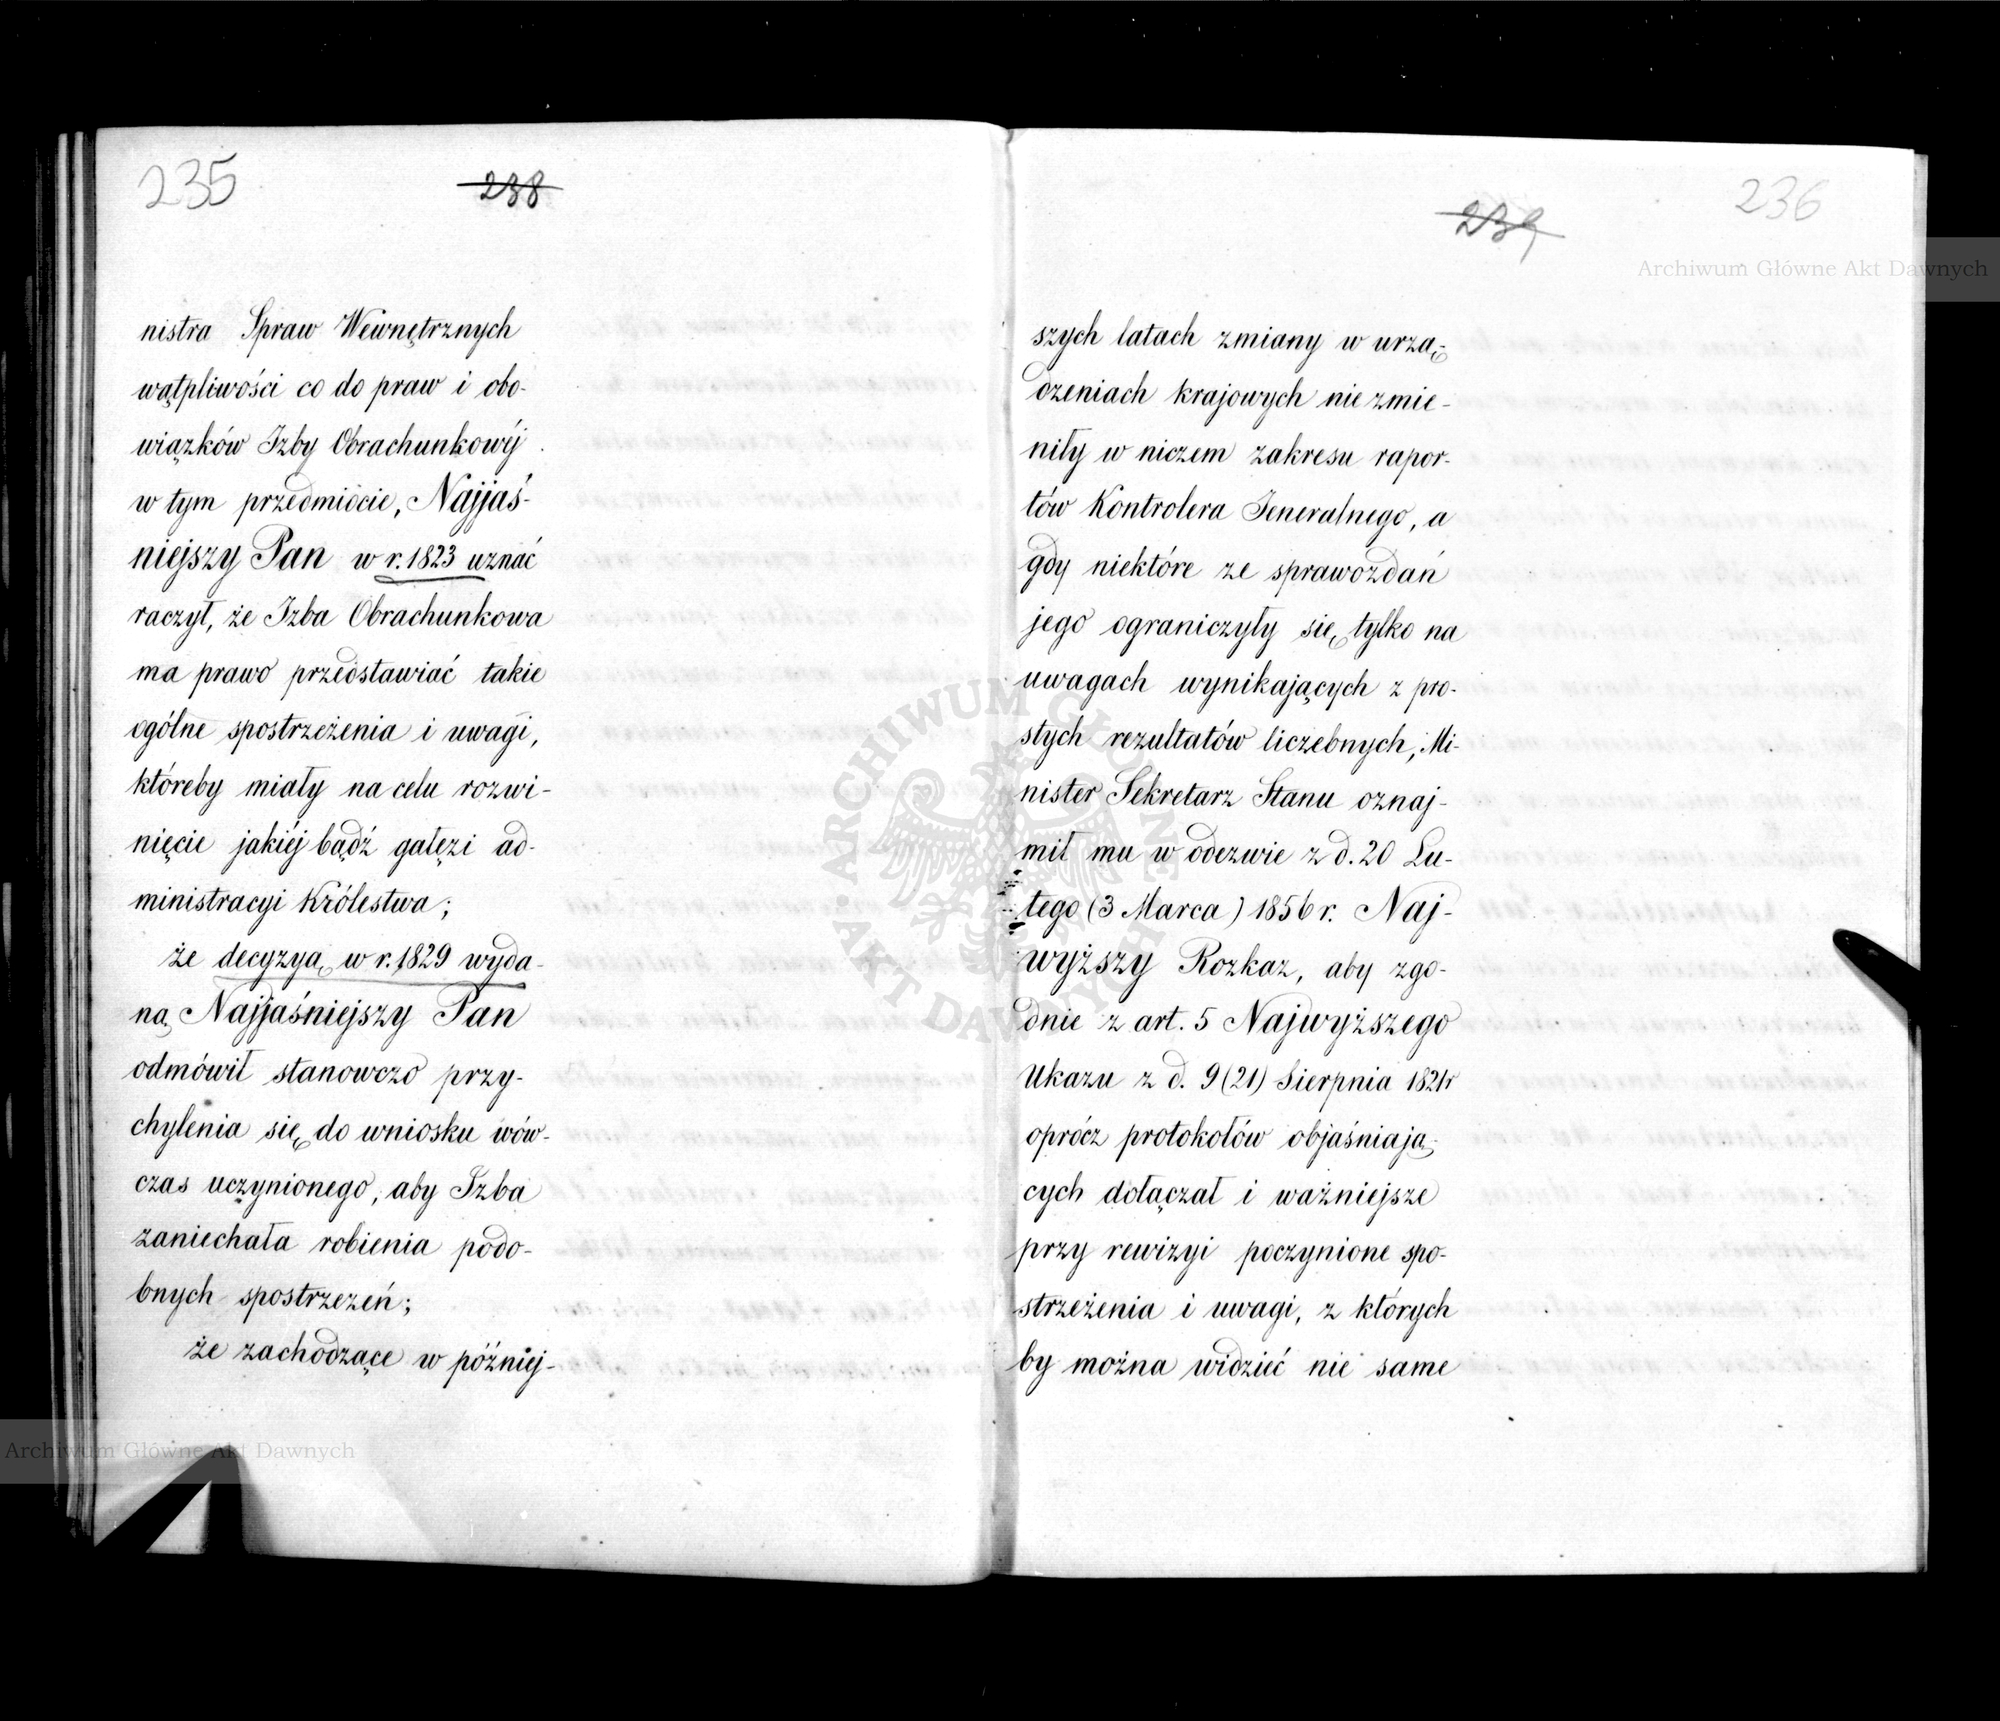 235
238
nistra Spraw Wewnętrznych
wątpliwości co do praw i obo-
wiązków Izby Obrachunkowéj
w tym przedmiocie, Najjaś-
niejszy Pan w r. 1823 uznać
raczył, że Izba Obrachunkowa
ma prawo przedstawiać takie
ogólne spostrzeżenia i uwagi,
któreby miały na celu rozwi-
nięcie jakiéj bądź gałęzi ad-
ministracyi Królestwa;
że decyzyą w r. 1829 wyda-
ną Najjaśniejszy Pan
odmówił stanowczo przy-
chylenia się do wniosku wów-
czas uczynionego, aby Izba
zaniechała robienia podo-
bnych spostrzeżeń;
że zachodzące w później-
236
239
szych latach zmiany w urzą-
dzeniach krajowych nie zmie-
niły w niczem zakresu rapor-
tów Kontrolera Jeneralnego, a
gdy niektóre ze sprawozdań
jego ograniczyły się tylko na
uwagach wynikających z pro-
stych rezultatów liczebnych, Mi-
nister Sekretarz Stanu oznaj-
mił mu w odezwie z d. 20 Lu-
tego (3 Marca) 1856 r. Naj-
wyższy Rozkaz, aby zgo-
dnie z art. 5 Najwyższego
Ukazu z d. 9 (21) Sierpnia 1821 r
oprócz protokołów objaśniają-
cych dołączał i ważniejsze
przy rewizyi poczynione spo-
strzeżenia i uwagi, z których
by można widzieć nie same
Archiwum Główne Akt Dawnych
Archiwum Główne Akt Dawnych
ARCHIWUM GŁÓWNE AKT DAWNYCH